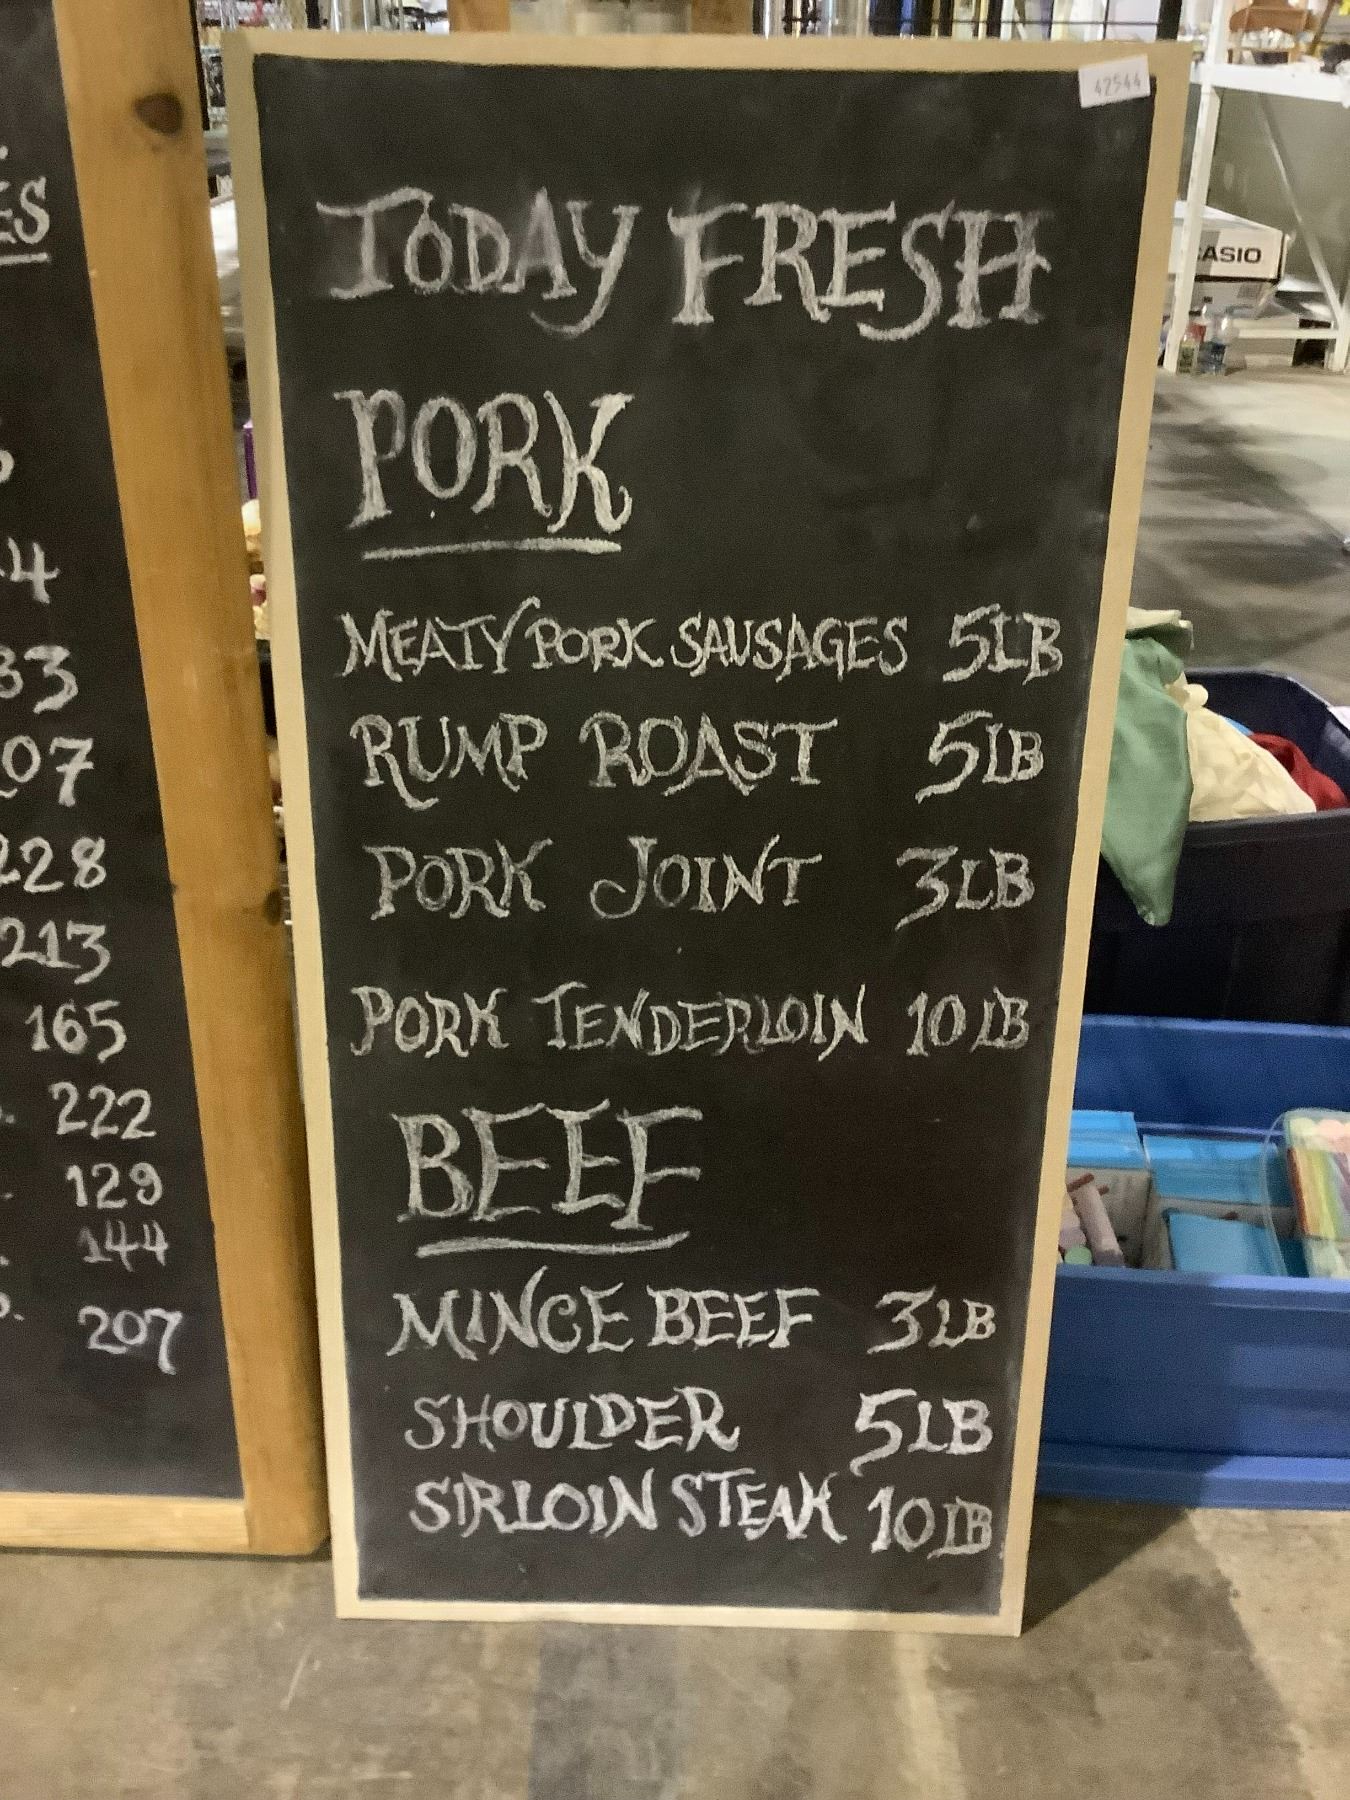 ES
4
33
07
228
213
165
222
129
144
207
42544
TODAY FRESH
PORK
MEATY PORK SAUSAGES 5LB
RUMP ROAST 5LB
PORK JOINT 3LB
PORK TENDERLOIN 10LB
BEEF
MINCE BEEF 3LB
SHOULDER 5LB
SIRLOIN STEAK 10LB
CASIO